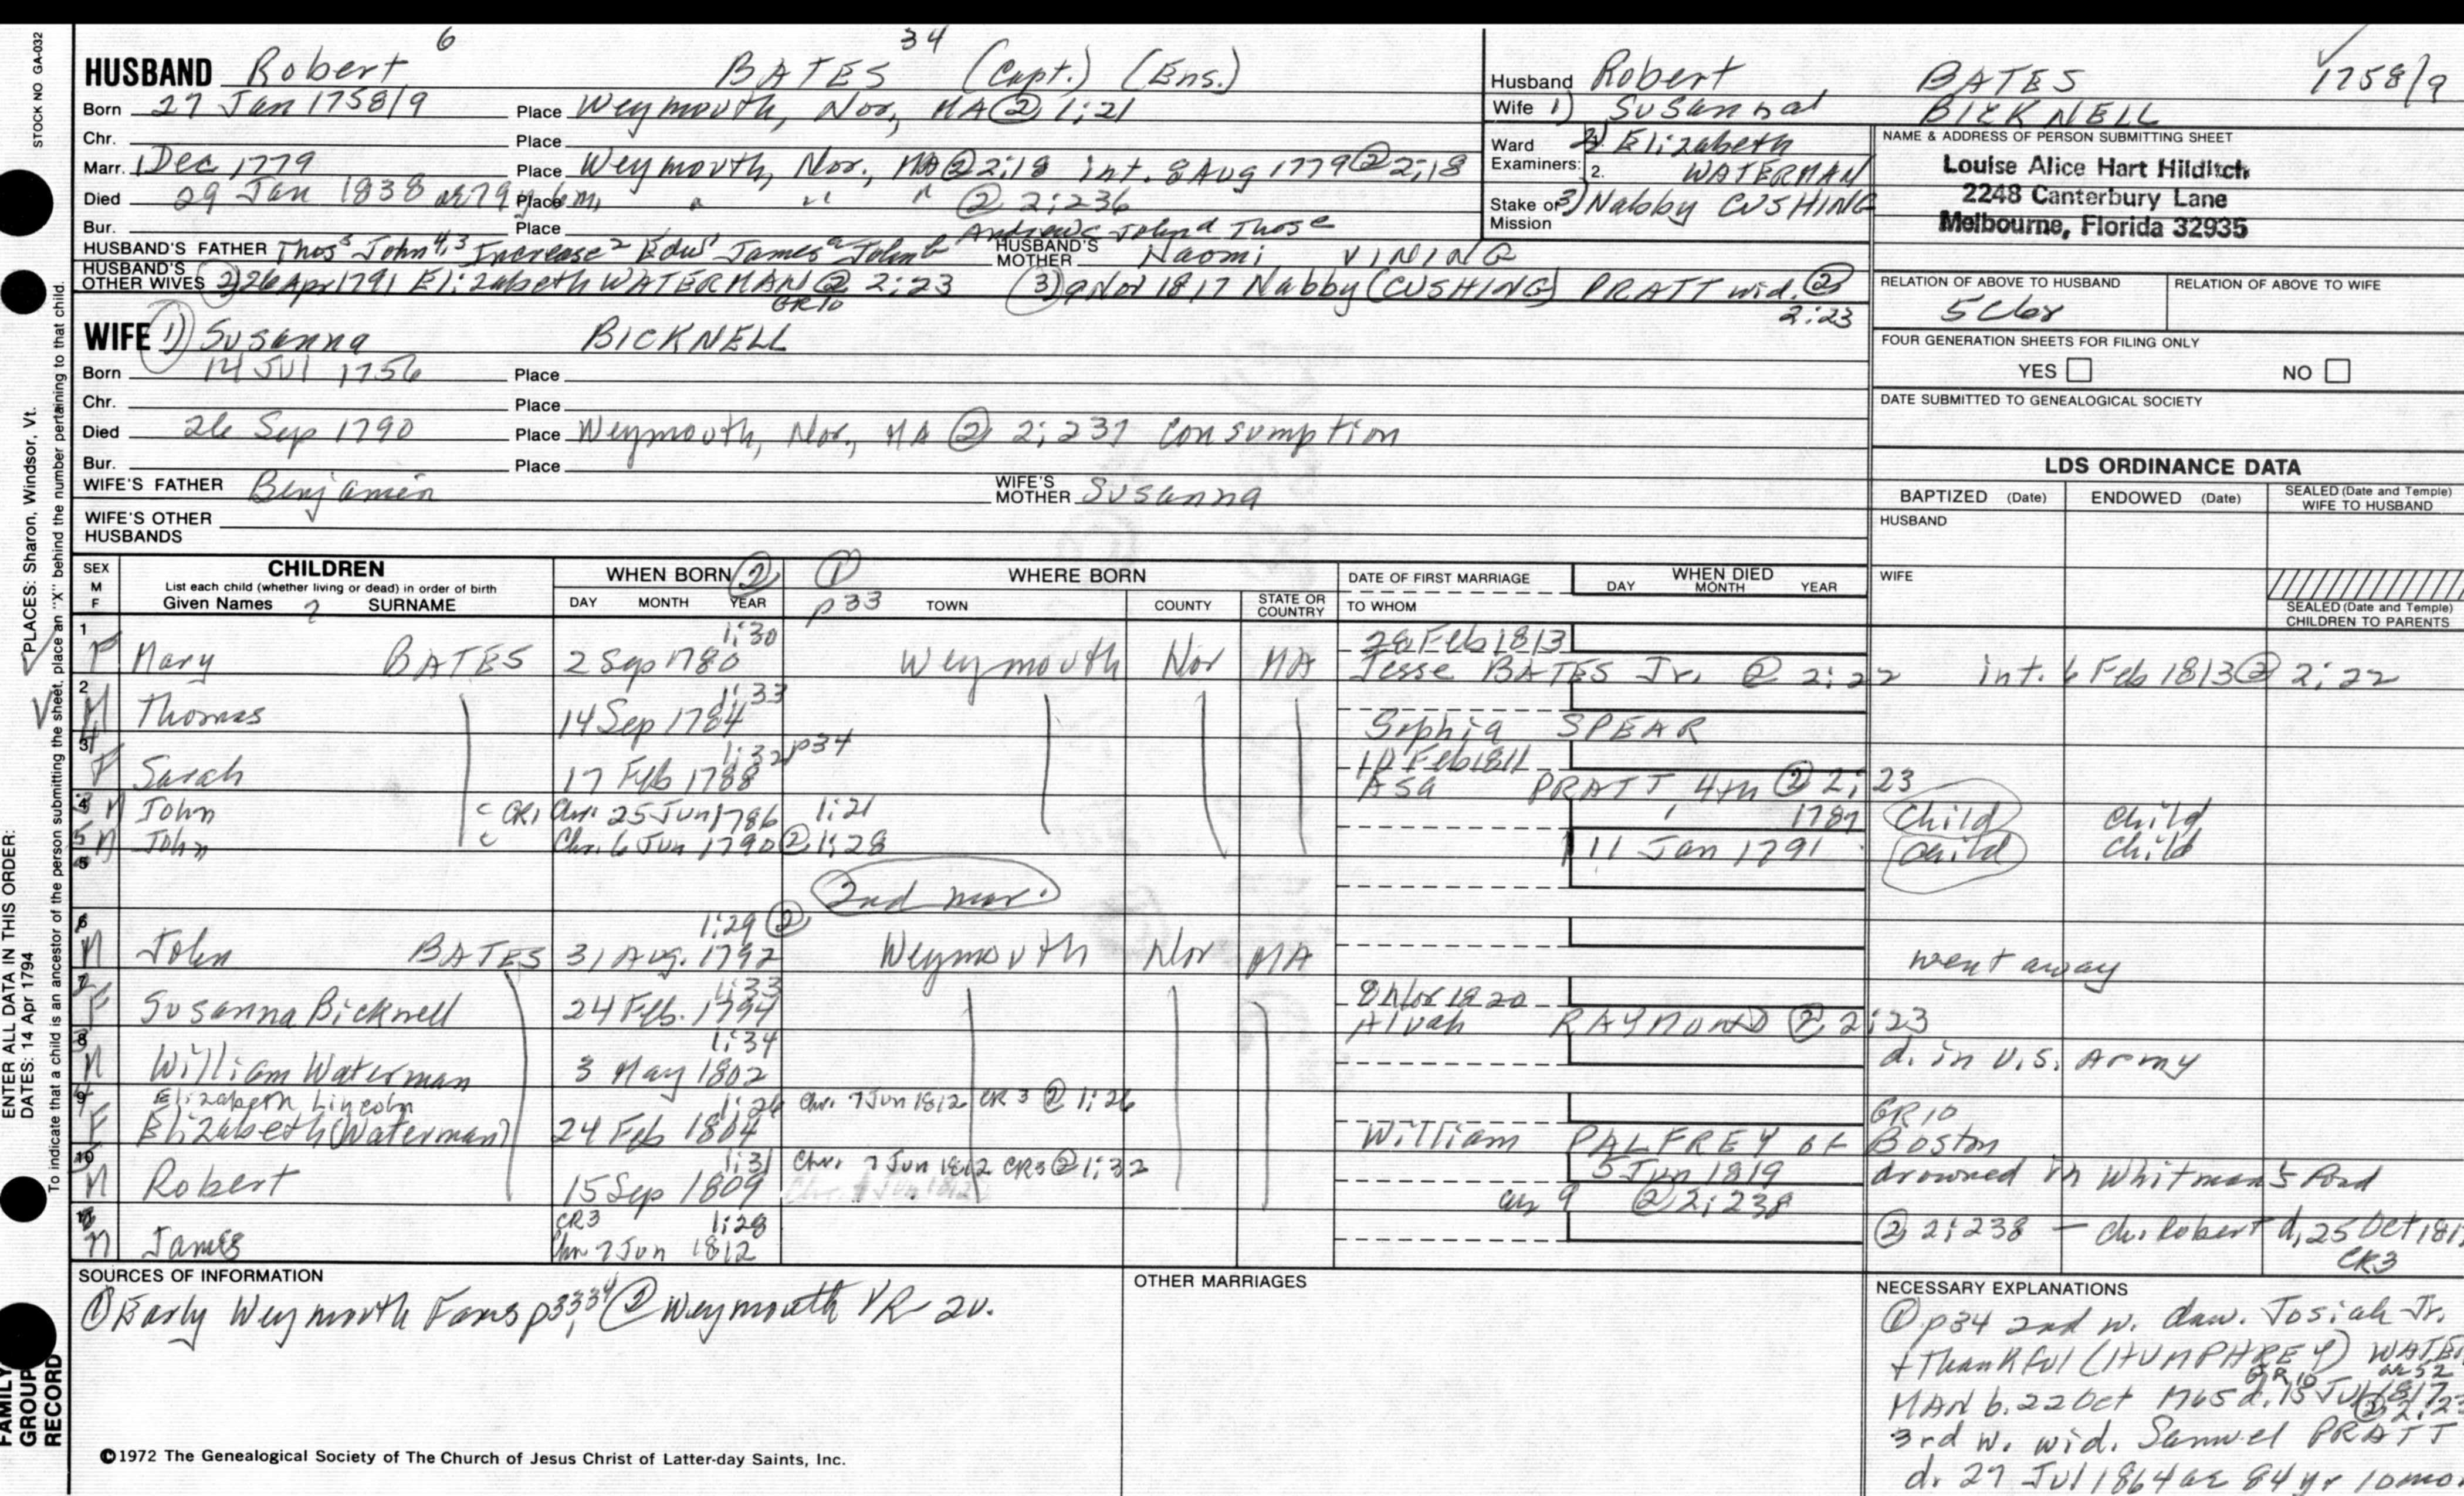 STOCK NO GA-032
6 34
HUSBAND Robert BATES (Capt.) (Ens.)
Born 27 Jan 1758/9 Place Weymouth, Nor, MA @ 1:21
Chr. Place
Marr. 1 Dec 1779 Place Weymouth, Nor., MA @ 2:18 int. 8 Aug 1779 @ 2:18
Died 29 Jan 1838 ae 79 y 6 m, Place " " " @ 2:236
Bur. Place
Andrew c John d Thos e
HUSBAND'S FATHER Thos5 John4,3 Increase2 Edw1 James a John b HUSBAND'S MOTHER Naomi VINING
HUSBAND'S OTHER WIVES 2) 26 Apr 1791 Elizabeth WATERMAN @ 2:23 (3) 9 Nov 1817 Nabby (CUSHING) PRATT wid. ②
GR10 2:23
WIFE 1) Susanna BICKNELL
Born 14 Jul 1756 Place
Chr. Place
Died 26 Sep 1790 Place Weymouth, Nor., MA ② 2:237 Consumption
Bur. Place
WIFE'S FATHER Benjamin WIFE'S MOTHER Susanna
WIFE'S OTHER HUSBANDS
Husband Robert BATES 1758/9
Wife 1) Susanna BICKNELL
Ward 2) Elizabeth
Examiners: 2. WATERMAN
Stake or Mission 3) Nabby CUSHING
NAME & ADDRESS OF PERSON SUBMITTING SHEET
Louise Alice Hart Hilditch
2248 Canterbury Lane
Melbourne, Florida 32935
RELATION OF ABOVE TO HUSBAND RELATION OF ABOVE TO WIFE
FOUR GENERATION SHEETS FOR FILING ONLY
YES NO
DATE SUBMITTED TO GENEALOGICAL SOCIETY
LDS ORDINANCE DATA
BAPTIZED (Date) ENDOWED (Date) SEALED (Date and Temple) WIFE TO HUSBAND
HUSBAND
WIFE
SEALED (Date and Temple) CHILDREN TO PARENTS
SEX M F CHILDREN
List each child (whether living or dead) in order of birth
Given Names SURNAME
WHEN BORN ②
DAY MONTH YEAR
① p33
WHERE BORN
TOWN COUNTY STATE OR COUNTRY
DATE OF FIRST MARRIAGE
TO WHOM
WHEN DIED
DAY MONTH YEAR
1 1:30 28 Feb 1813
F Mary BATES 2 Sep 1780 Weymouth Nor MA Jesse BATES Jr. @ 2:22 int. 6 Feb 1813 @ 2:22
2 1:33
M Thomas 14 Sep 1784 Sophia SPEAR
1:32 p34
F Sarah 17 Feb 1788 Asa PRATT 4th ② 2:23
M John CR1 Chr. 25 Jun 1786 1:21 1787 Child Child
5 M John Chr. 6 Jun 1790 ② 1:28 11 Jan 1791 Child Child
2nd mar.
6 1:29 ②
M John BATES 31 Aug. 1792 Weymouth Nor MA went away
7 1:33 8 Nov 1820
F Susanna Bicknell 24 Feb. 1794 Alvah RAYMOND ② 2:23
8 1:34
M William Waterman 3 May 1802 d. in U.S. Army
9 Elizabeth Lincoln 1:26 Chr. 7 Jun 1812 CR 3 ② 1:26 GR10
F Elizabeth (Waterman) 24 Feb 1804 William PALFREY of Boston
10 1:31 Chr. 7 Jun 1812 CR3 ② 1:32 5 Jun 1819 drowned in Whitman's Pond
M Robert 15 Sep 1809 ae 9 ② 2:238
CR3 1:28
M James Chr 7 Jun 1812 ② 2:238 - ch. Robert d, 25 Oct
CR3
SOURCES OF INFORMATION
① Early Weymouth Fams p33,34 ② Weymouth VR 2v.
OTHER MARRIAGES
NECESSARY EXPLANATIONS
① p34 2nd w. dau. Josiah Jr.
+ Thankful (HUMPHREY) WATER
GR10 ae 52
MAN b. 22 Oct 1765 d. 15 Jul 1817
3rd w. wid. Samuel PRATT
d. 27 Jul 1864 ae 84 yr 10 mo
©1972 The Genealogical Society of The Church of Jesus Christ of Latter-day Saints, Inc.
FAMILY GROUP RECORD
ENTER ALL DATA IN THIS ORDER:
DATES: 14 Apr 1794
PLACES: Sharon, Windsor, Vt.
To indicate that a child is an ancestor of the person submitting the sheet, place an "X" behind the number pertaining to that child.